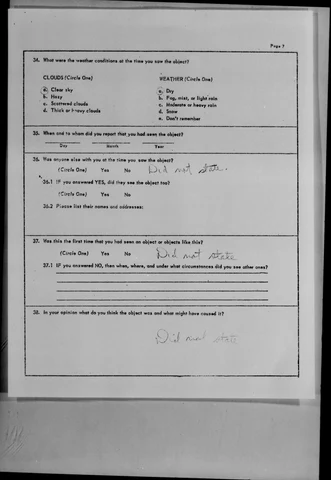 Page 7
34. What were the weather conditions at the time you saw the object?
CLOUDS (Circle One) WEATHER (Circle One)
a. Clear sky a. Dry
b. Hazy b. Fog, mist, or light rain
c. Scattered clouds c. Moderate or heavy rain
d. Thick or heavy clouds d. Snow
e. Don't remember
35. When and to whom did you report that you had seen the object?
Day Month Year
36. Was anyone else with you at the time you saw the object?
(Circle One) Yes No Did not state.
36.1 IF you answered YES, did they see the object too?
(Circle One) Yes No
36.2 Please list their names and addresses:
37. Was this the first time that you had seen an object or objects like this?
(Circle One) Yes No Did not state
37.1 IF you answered NO, then when, where, and under what circumstances did you see other ones?
38. In your opinion what do you think the object was and what might have caused it?
Did not state